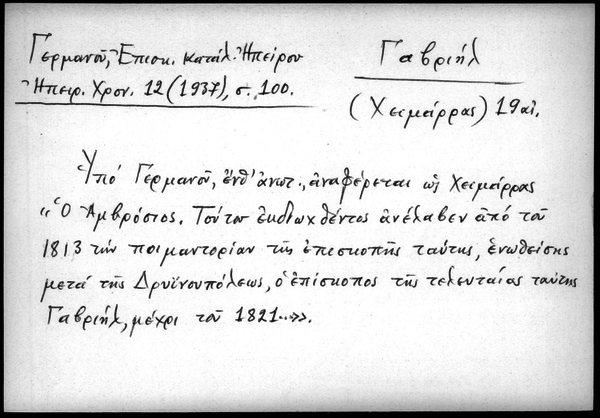 Γερμανοῦ, Ἐπισκ. κατάλ. Ἠπείρου
Ἠπειρ. Χρον. 12 (1937), σ. 100.
Γαβριήλ
(Χειμάρρας) 19αἰ.
Ὑπό Γερμανοῦ, ἐνθ' ἀνωτ., ἀναφέρεται ὡς Χειμάρρας
«Ὁ Ἀμβρόσιος. Τούτου ἐκδιωχθέντος ἀνέλαβεν ἀπό τοῦ
1813 τήν ποιμαντορίαν τῆς ἐπισκοπῆς ταύτης, ἑνωθείσης
μετά τῆς Δρυϊνουπόλεως, ὁ ἐπίσκοπος τῆς τελευταίας ταύτης
Γαβριήλ, μέχρι τοῦ 1821..».